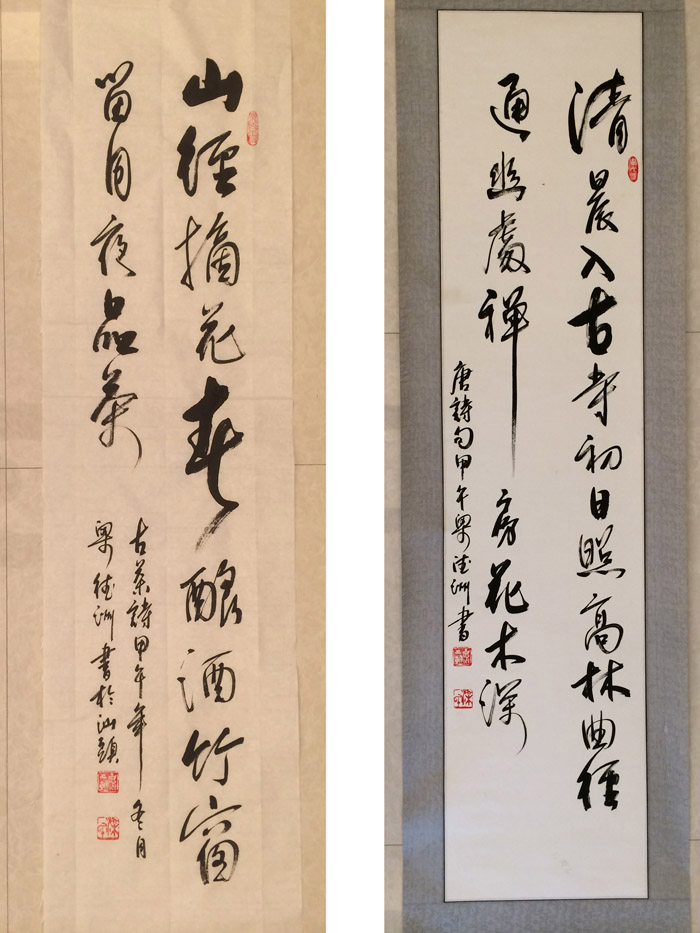 山徑摘花春釀酒竹窗
留月夜品茶
古茶詩甲午年冬月
梁德洲書於汕頭
清晨入古寺初日照高林曲徑
通幽處禪房花木深
唐詩句甲午梁德洲書